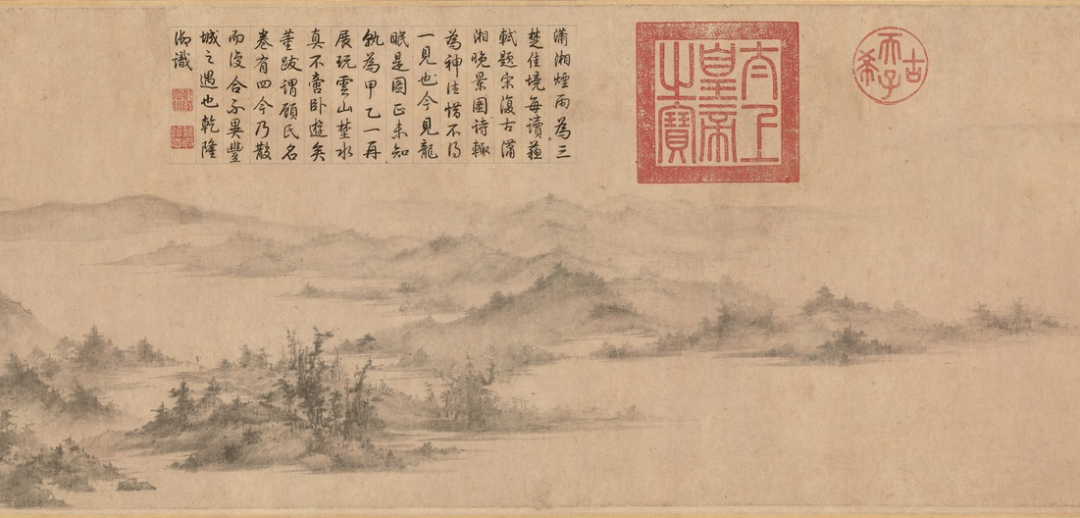 古希天子
太上
皇帝
之寶
瀟湘煙雨為三
楚佳境每讀蘇
軾題宋復古瀟
湘晚景圖詩輒
為神往惜不得
一見也今見龍
眠是圖正未知
孰為甲乙一再
展玩雲山楚水
真不啻卧遊矣
董跋謂顧氏名
卷有四今乃散
而復合不異豐
城之遇也乾隆
御識